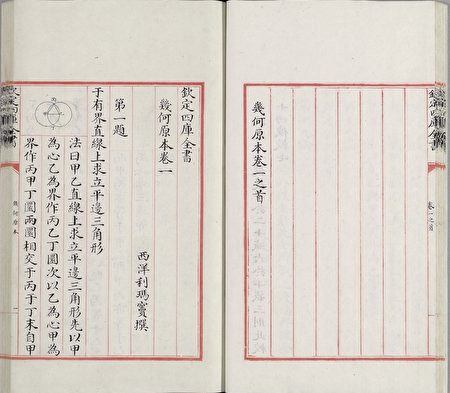 欽定四庫全書
卷一之首
幾何原本卷一之首
欽定四庫全書
幾何原本卷一
西洋利瑪竇撰
第一題
于有界直線上求立平邊三角形
丙
法曰甲乙直線上求立平邊三角形先以甲
為心乙為界作丙乙丁圜次以乙為心甲為
界作丙甲丁圜兩圜相交于丙于丁末自甲
欽定四庫全書
幾何原本